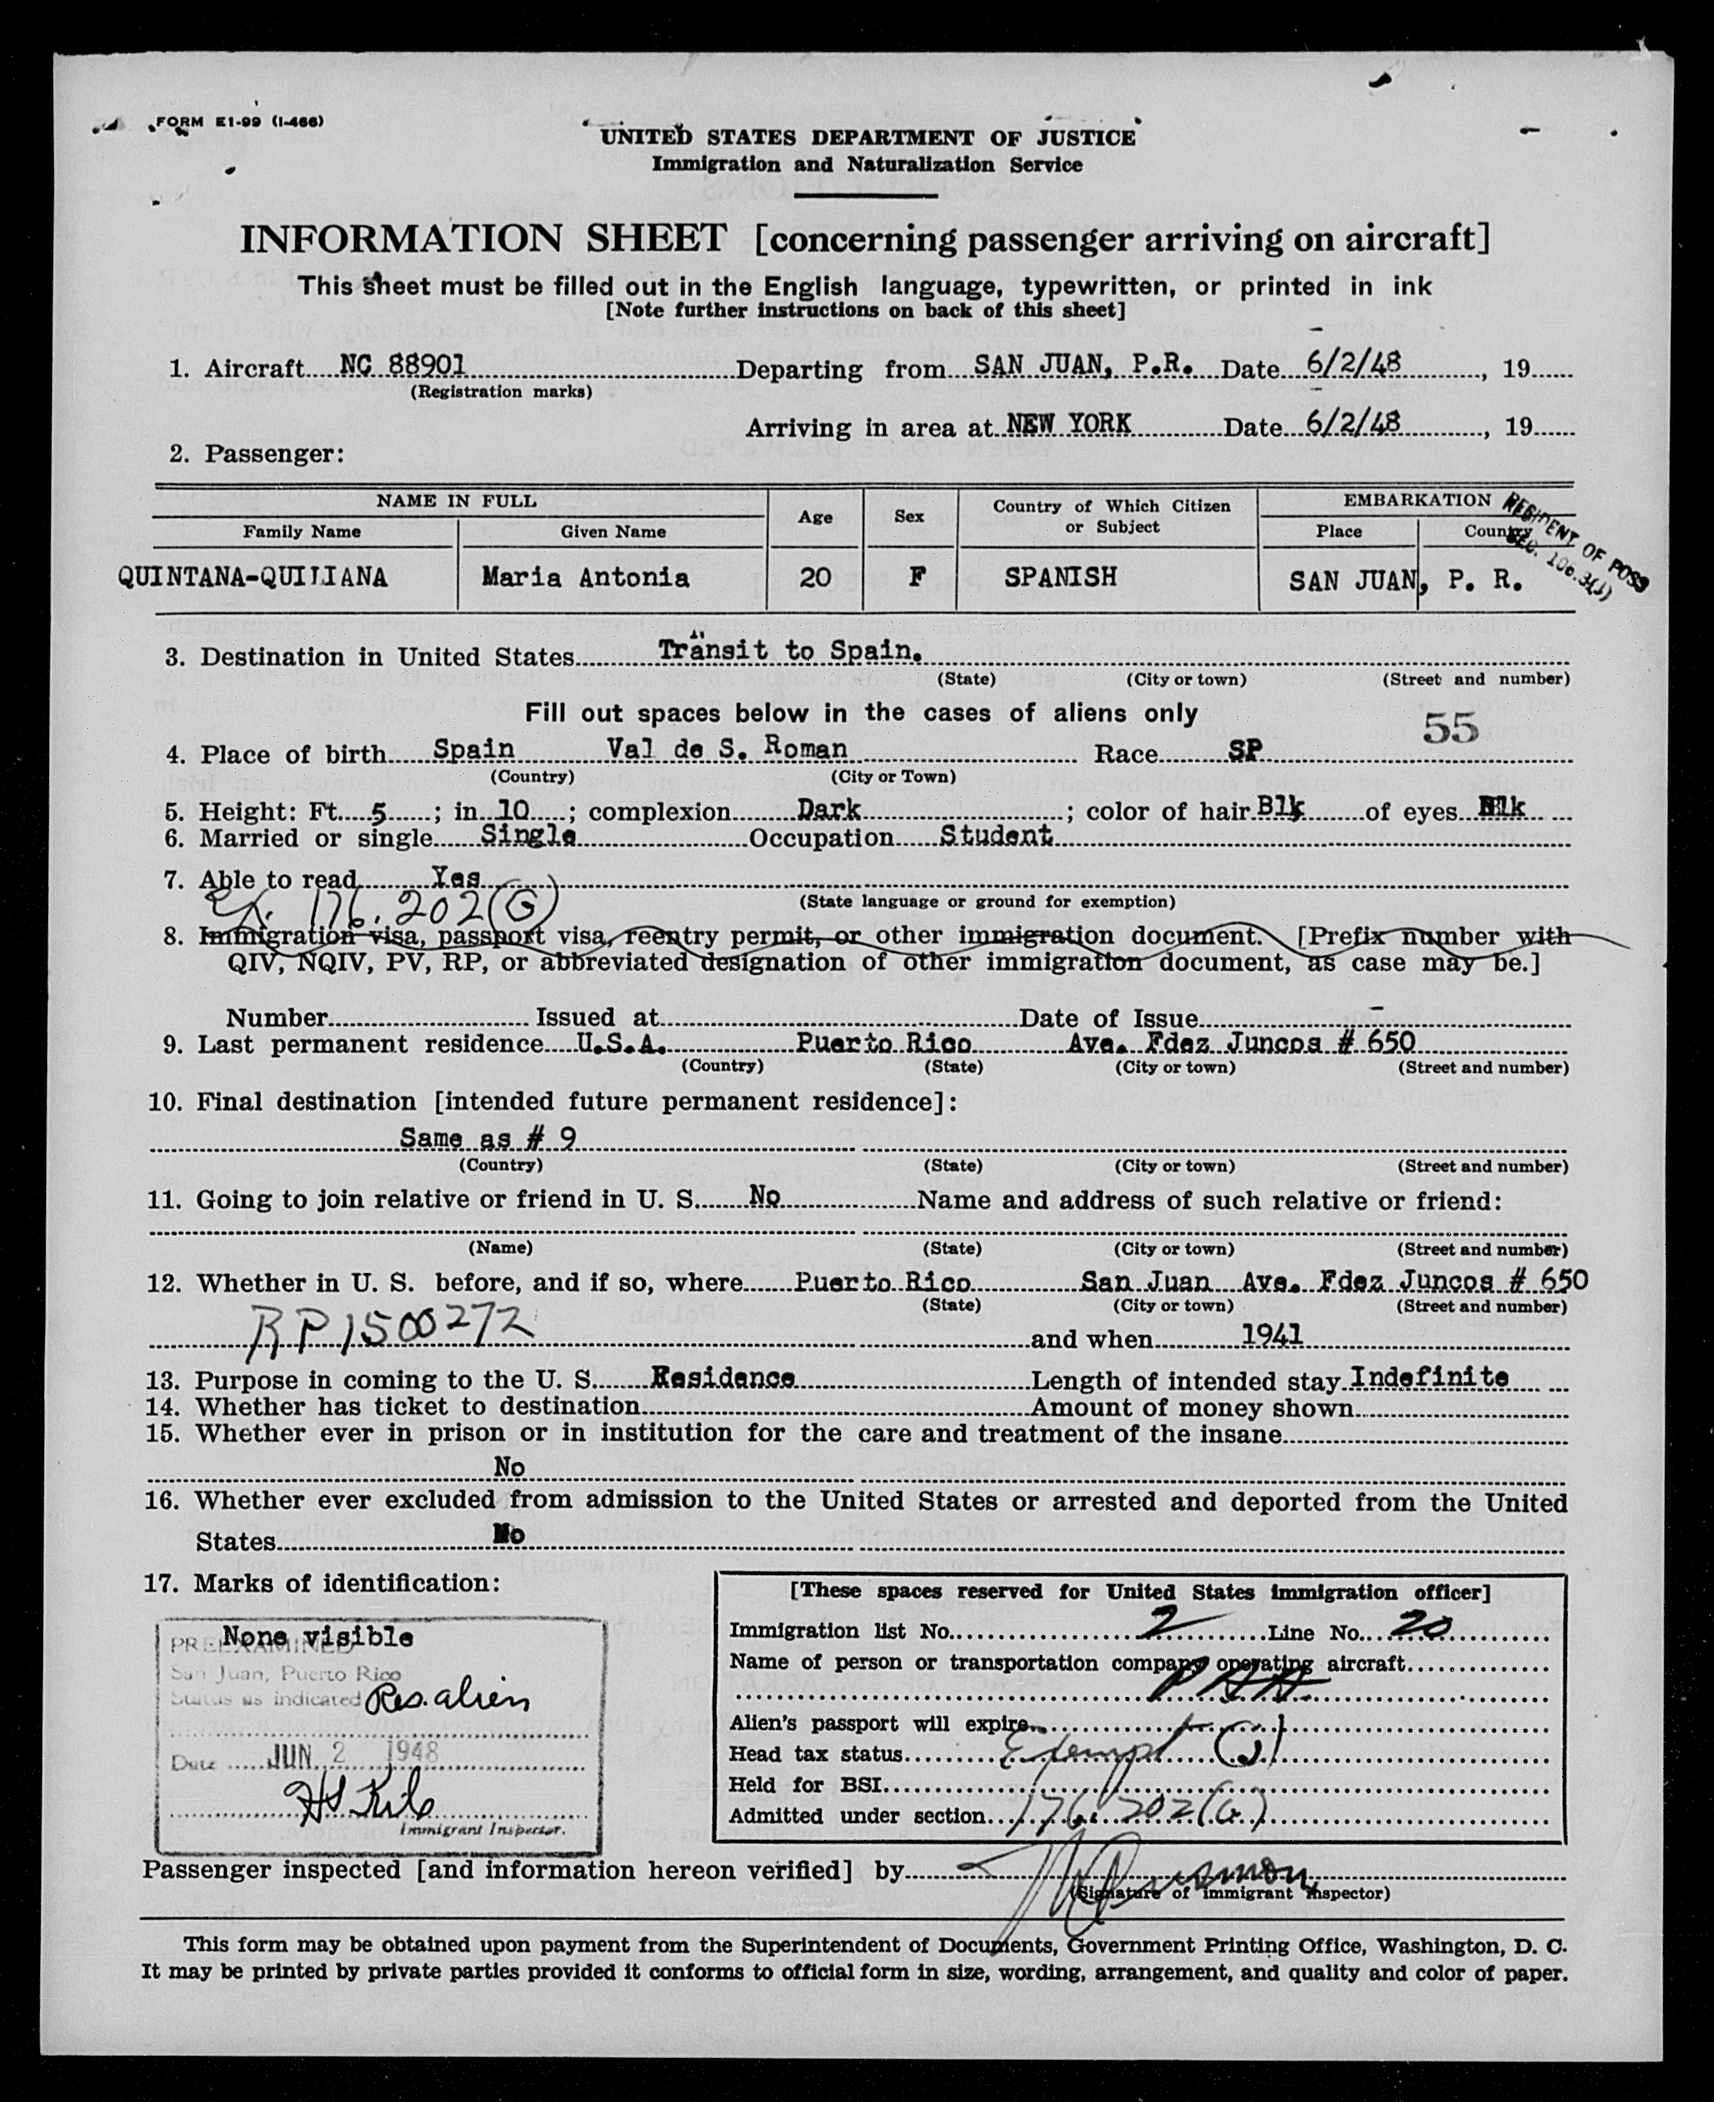 FORM E1-99 (I-466)
UNITED STATES DEPARTMENT OF JUSTICE
Immigration and Naturalization Service
INFORMATION SHEET [concerning passenger arriving on aircraft]
This sheet must be filled out in the English language, typewritten, or printed in ink
[Note further instructions on back of this sheet]
1. Aircraft NC 88901 Departing from SAN JUAN, P.R. Date 6/2/48, 19
(Registration marks)
Arriving in area at NEW YORK Date 6/2/48, 19
2. Passenger:
NAME IN FULL Age Sex Country of Which Citizen or Subject EMBARKATION
Family Name Given Name Place Country
RESIDENT OF POSS
SEC. 106.3(J)
QUINTANA-QUILIANA Maria Antonia 20 F SPANISH SAN JUAN, P. R.
3. Destination in United States Transit to Spain.
(State) (City or town) (Street and number)
Fill out spaces below in the cases of aliens only
55
4. Place of birth Spain Val de S. Roman Race SP
(Country) (City or Town)
5. Height: Ft. 5; in. 10; complexion Dark; color of hair Blk of eyes Blk
6. Married or single Single Occupation Student
7. Able to read Yes
(State language or ground for exemption)
176.202(G)
8. Immigration visa, passport visa, reentry permit, or other immigration document. [Prefix number with
QIV, NQIV, PV, RP, or abbreviated designation of other immigration document, as case may be.]
Number Issued at Date of Issue
9. Last permanent residence U.S.A. Puerto Rico Ave. Fdez Juncos # 650
(Country) (State) (City or town) (Street and number)
10. Final destination [intended future permanent residence]:
Same as # 9
(Country) (State) (City or town) (Street and number)
11. Going to join relative or friend in U. S. No Name and address of such relative or friend:
(Name) (State) (City or town) (Street and number)
12. Whether in U. S. before, and if so, where Puerto Rico San Juan Ave. Fdez Juncos # 650
(State) (City or town) (Street and number)
RP1500272 and when 1941
13. Purpose in coming to the U. S. Residence Length of intended stay Indefinite
14. Whether has ticket to destination Amount of money shown
15. Whether ever in prison or in institution for the care and treatment of the insane
No
16. Whether ever excluded from admission to the United States or arrested and deported from the United
States No
17. Marks of identification:
None visible
PREEXAMINED
San Juan, Puerto Rico
Status as indicated Res. alien
Date JUN 2 1948
Immigrant Inspector.
[These spaces reserved for United States immigration officer]
Immigration list No. 2 Line No. 20
Name of person or transportation company operating aircraft
PAA
Alien's passport will expire
Head tax status Exempt (J)
Held for BSI
Admitted under section 176.202(G)
Passenger inspected [and information hereon verified] by
(Signature of immigrant inspector)
This form may be obtained upon payment from the Superintendent of Documents, Government Printing Office, Washington, D. C.
It may be printed by private parties provided it conforms to official form in size, wording, arrangement, and quality and color of paper.